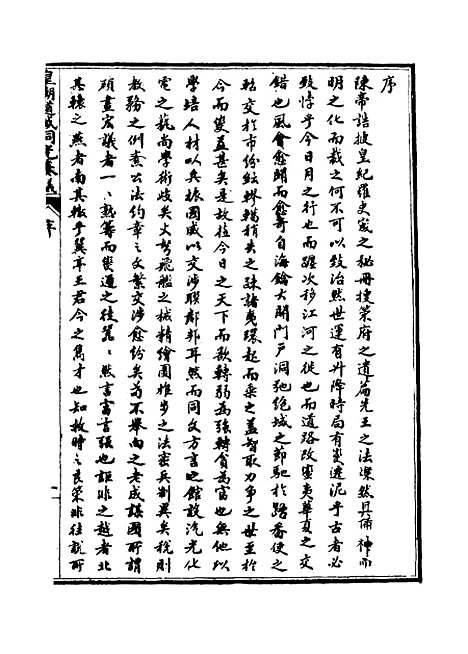 序
陳帝誥披皇紀羅史宬之秘冊搜策府之遺篇先王之法燦然具備神而
明之化而裁之何不可以致治然世運有升降時局有變遷泥乎古者必
致悖乎今日月之行也而躔次移江河之徙也而道路改蠻夷華夏之交
錯也風會愈開而愈奇自海鑰大開門戶洞弛絕域之節馳於踏番使之
轄交於市份紜轇轕楨失之疎諸夷環起而乘之益智取力爭之毋至於
今而變益甚矣是故值今日之天下而欲轉弱為強轉貧為富也無他以
學培人材以兵振國威以交涉聯鄰邦耳然而同文方言之館設汽光化
電之蓺尚學術歧矣火弩飛艦之械精繪圖推步之法密兵制異矣稅則
教務之例煮公法約章之文繁交涉愈紛矣苟不舉向之老成謀國所謂
碩畫宏議者一一熟籌而變通之往籌一一然言富言強也詎非之越者北
其轅之燕者南其轍乎冀亭王君今之雋才也知救時之良策非往就所
皇朝道咸同光奏議 序
一